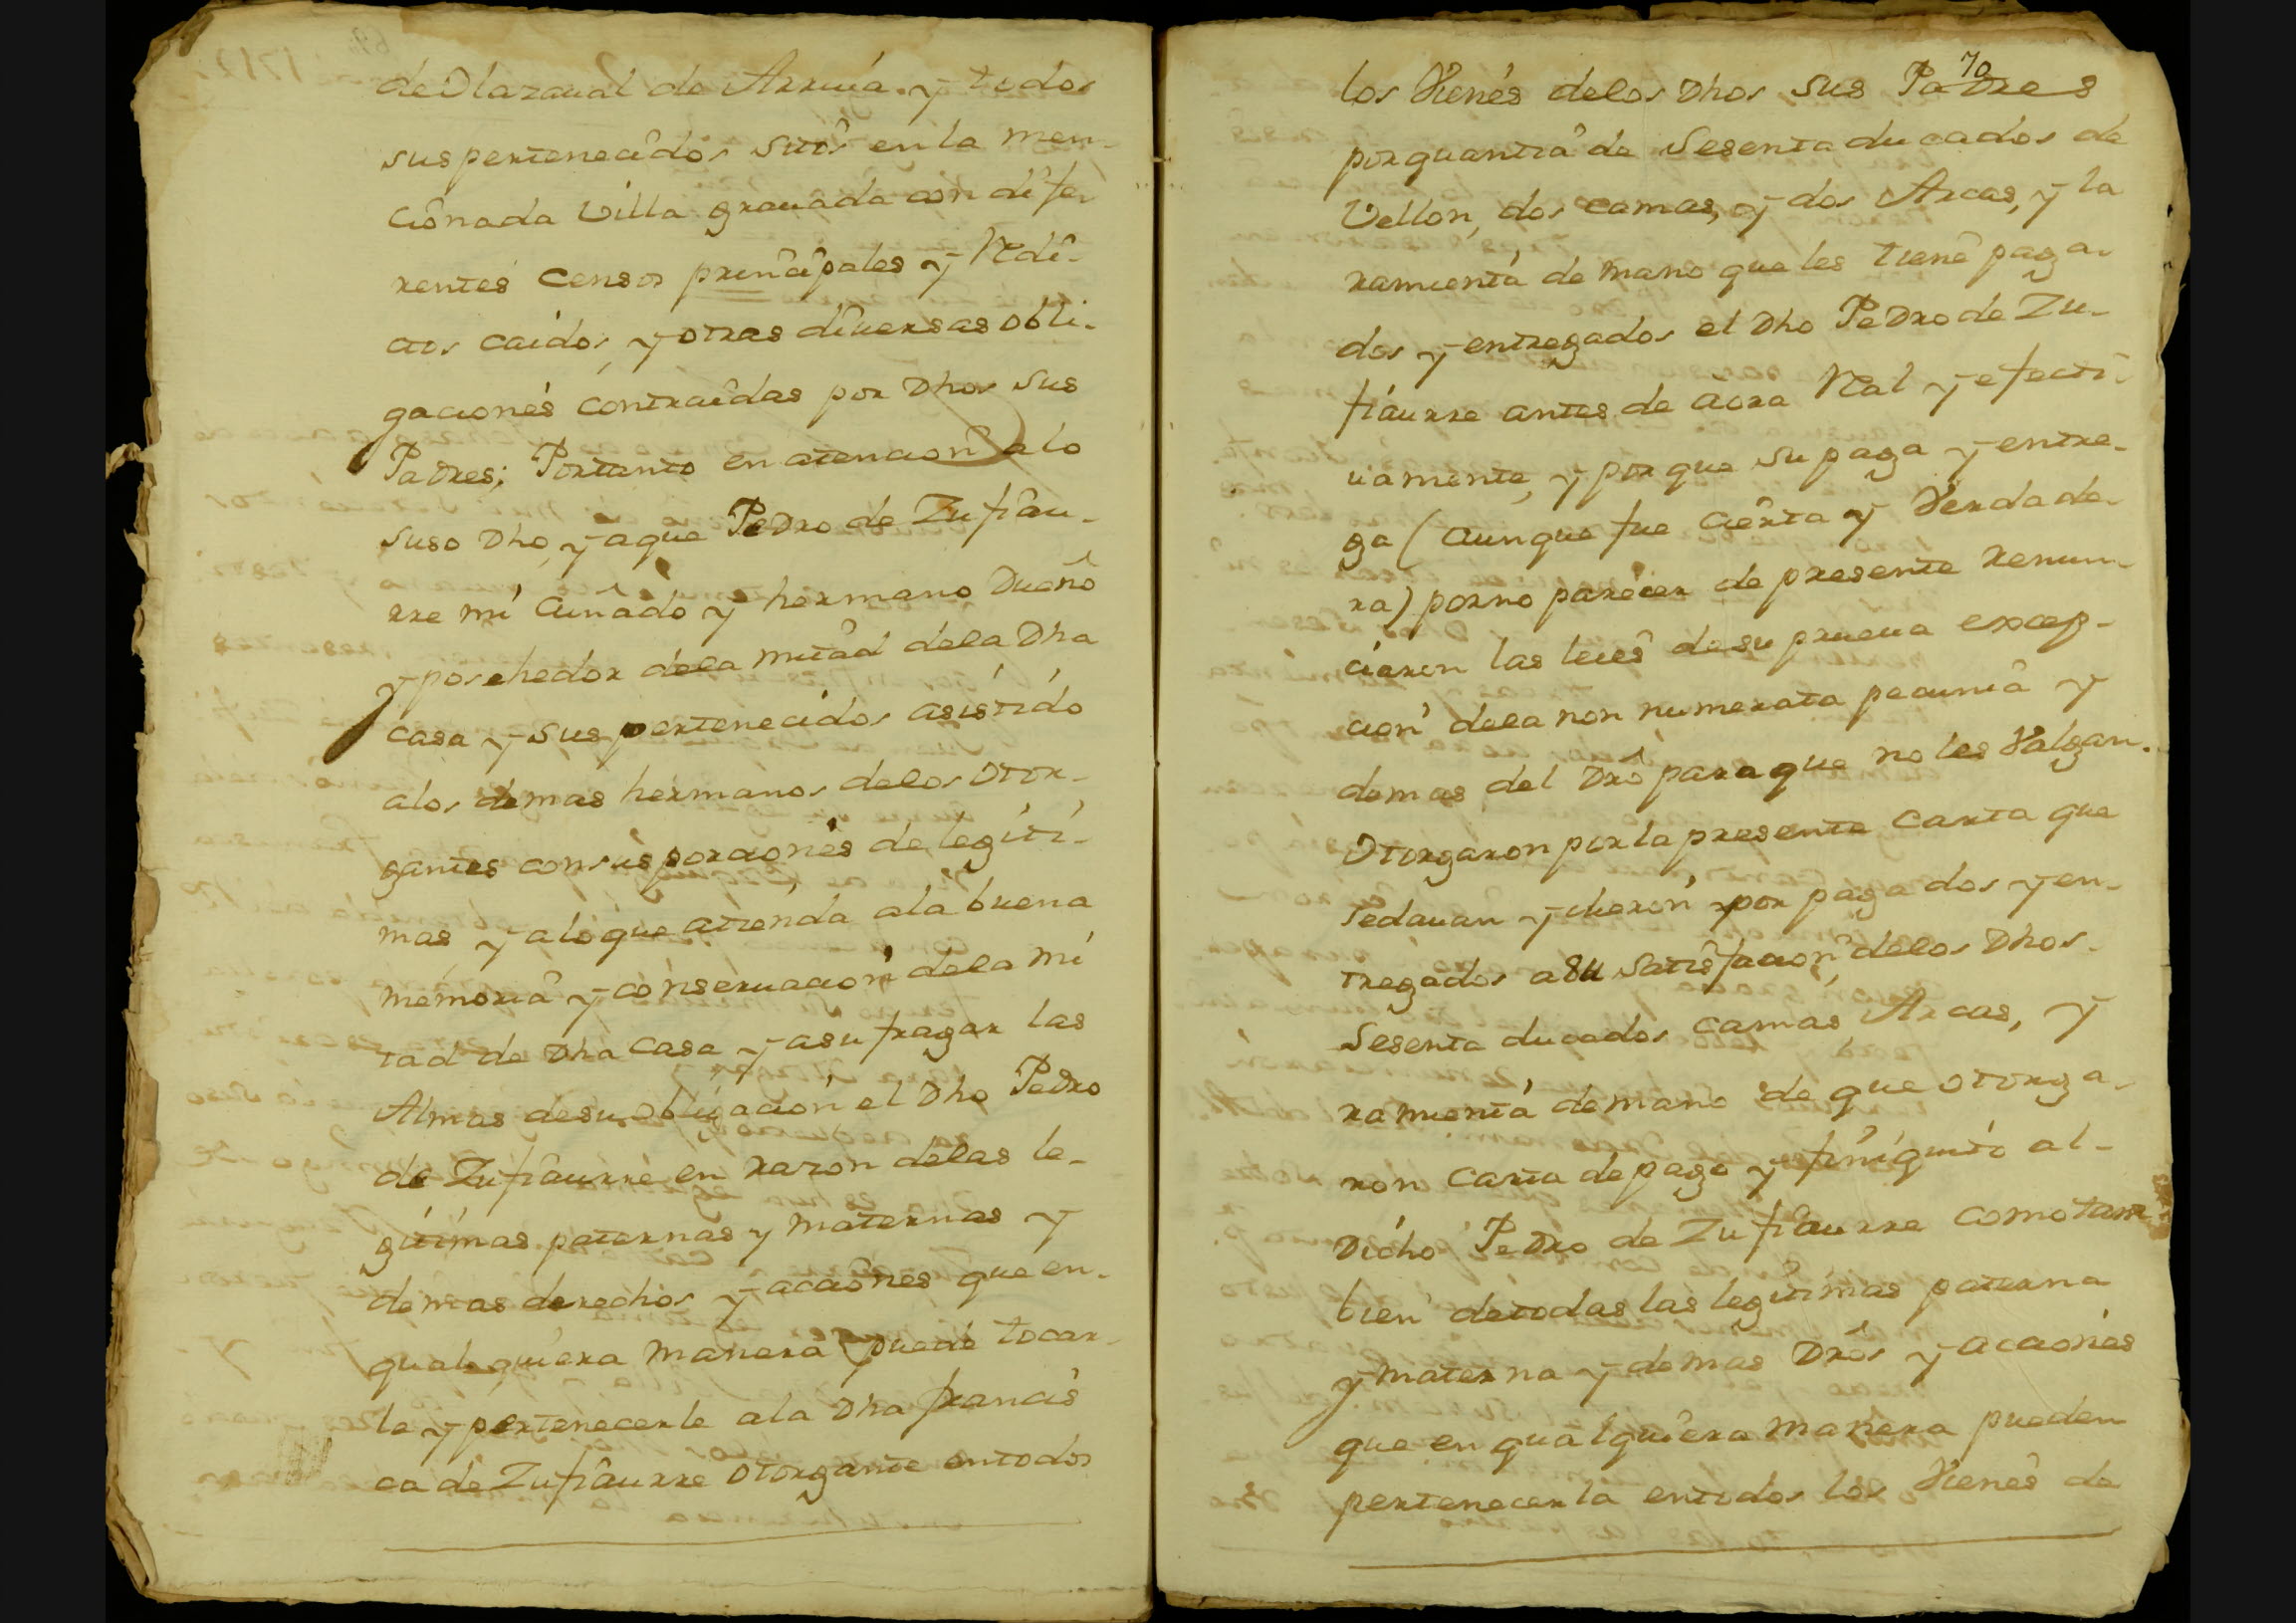 de Olazaual de Arruia. y todos
sus pertenecidos sitos en la men-
cionada Villa grauada con dife-
rentes censos principales y Redi-
ctos caidos, y otras diuersas obli-
gaciones contraidas por Dhos sus
Padres; Portanto en atencion alo
suso Dho, y a que Pedro de Zufiau-
rre mi Cuñado y hermano Dueño
y posehedor dela mitad dela Dha
casa y sus pertenecidos asistido
alos demas hermanos delos Otor-
gantes con sus porciones de legiti-
mas, y alo que atienda ala buena
memoria y conseruacion dela mi
tad de Dha casa y asufragar las
Almas desu obligacion el Dho Pedro
de Zufiaurre en razon delas le-
gitimas paternas y maternas y
demas derechos y acciones que en-
qualquiera manera puede tocar-
le y pertenecerle ala Dha francis
ca de Zufiaurre Otorgante entodos
70
los Vienes delos Dhos sus Padres
por quantia de Sesenta ducados de
Vellon, dos camas, y dos Arcas, y la
ramienta de mano que les tiene paga-
dos y entregados el Dho Pedro de Zu-
fiaurre antes de aora Real y efecti-
uamente, y por que su paga y entre-
ga (aunque fue Cierta y Verdade-
ra) por no parecer de presente renun-
ciaron las leies desu prueua excep-
cion dela non numerata pecunia y
demas del Dro para que no les Valgan.
Otorgaron por la presente carta que
sedauan y dieron por pagados y en-
tregados asu satisfacion delos Dhos
Sesenta ducados, camas, Arcas, y
ramienta demano de que otorga-
ron carta de pago y finiquito al-
Dicho Pedro de Zufiaurre como tam
bien detodas las legitimas paterna
y materna y demas Dros y acciones
que en qualquiera manera pueden
pertenecerla entodos los Vienes de